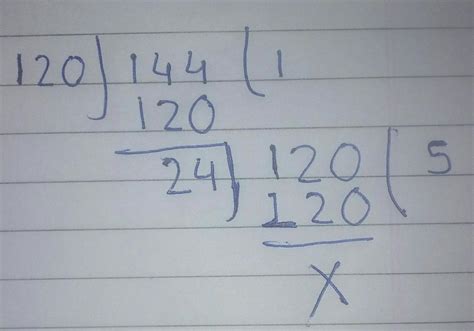 120) 144 (1
120
24) 120 (5
120
X